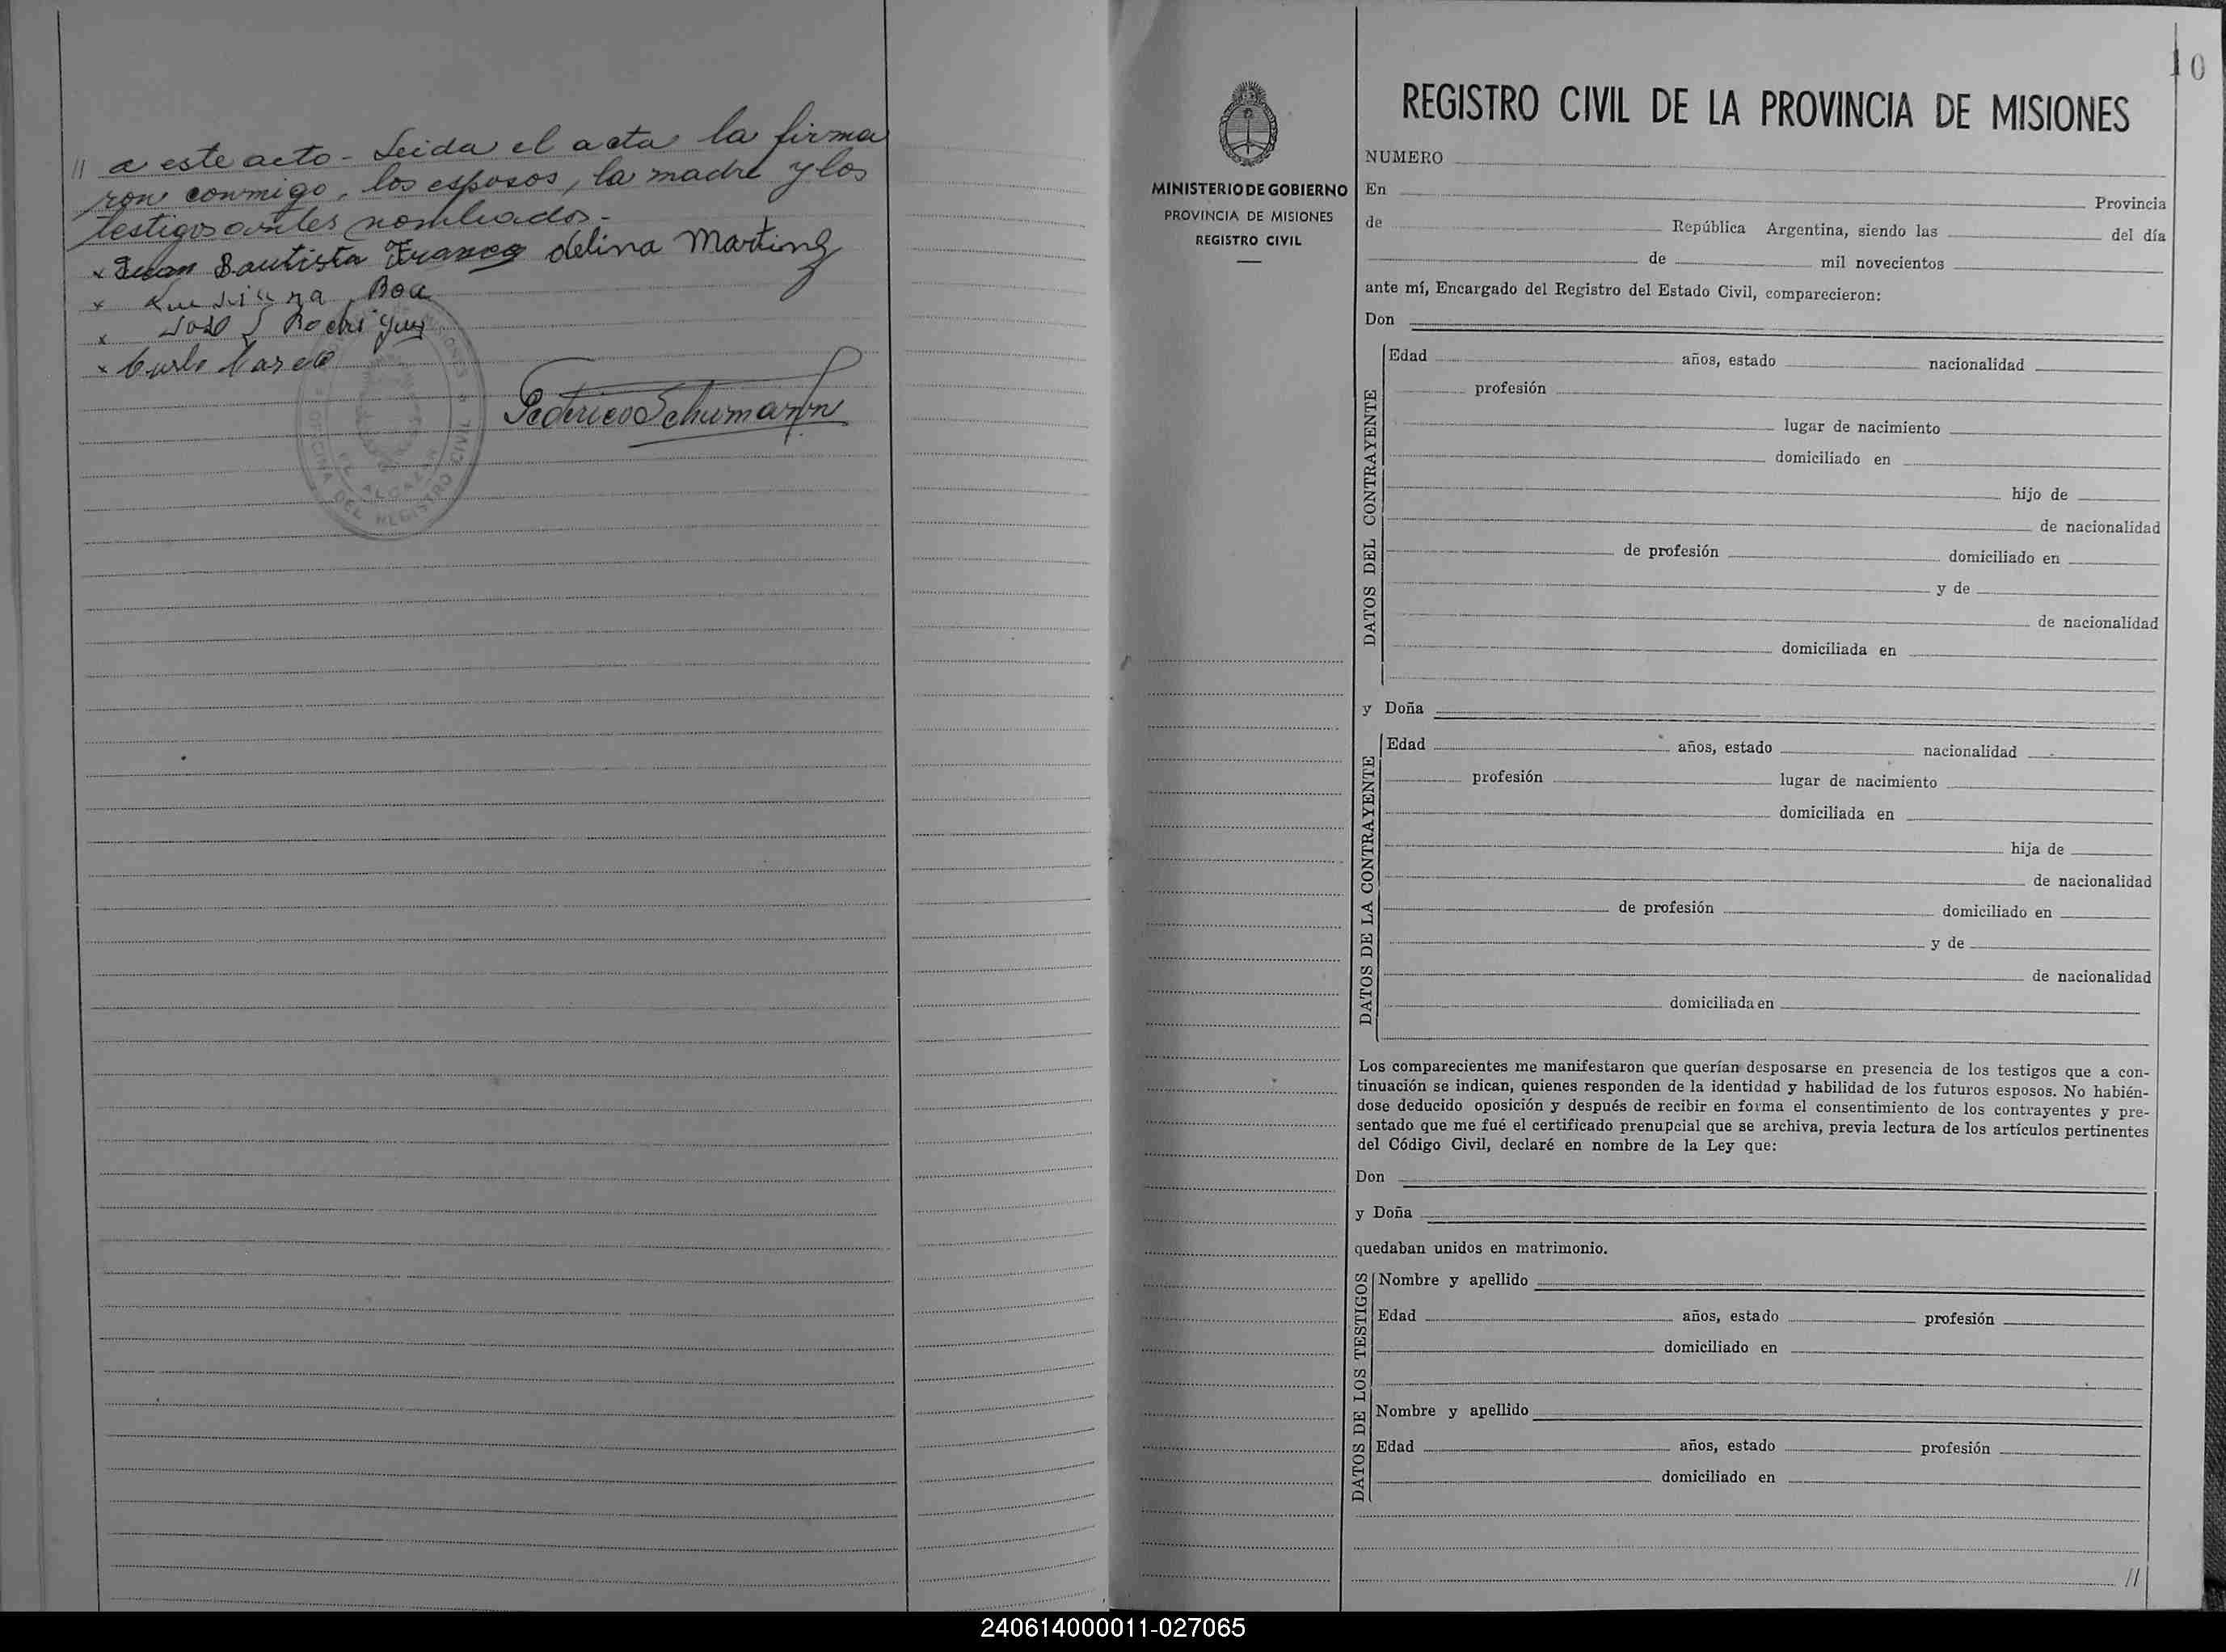 // a este acto - Leida el acta la firma
ron conmigo, los esposos, la madre y los
testigos antes nombrados.-
x Juan Bautista Franco delina Martinez
x Luciana Boa
x José Rodriguez
x
Federico Schumann
OFICINA DEL REGISTRO CIVIL
EL ALCAZAR
10
MINISTERIO DE GOBIERNO
PROVINCIA DE MISIONES
REGISTRO CIVIL
REGISTRO CIVIL DE LA PROVINCIA DE MISIONES
NUMERO
En Provincia
de República Argentina, siendo las del día
de mil novecientos
ante mí, Encargado del Registro del Estado Civil, comparecieron:
Don
DATOS DEL CONTRAYENTE
Edad años, estado nacionalidad
profesión
lugar de nacimiento
domiciliado en
hijo de
de nacionalidad
de profesión domiciliado en
y de
de nacionalidad
domiciliada en
y Doña
DATOS DE LA CONTRAYENTE
Edad años, estado nacionalidad
profesión lugar de nacimiento
domiciliada en
hija de
de nacionalidad
de profesión domiciliado en
y de
de nacionalidad
domiciliada en
Los comparecientes me manifestaron que querían desposarse en presencia de los testigos que a con-
tinuación se indican, quienes responden de la identidad y habilidad de los futuros esposos. No habién-
dose deducido oposición y después de recibir en forma el consentimiento de los contrayentes y pre-
sentado que me fué el certificado prenupcial que se archiva, previa lectura de los artículos pertinentes
del Código Civil, declaré en nombre de la Ley que:
Don
y Doña
quedaban unidos en matrimonio.
DATOS DE LOS TESTIGOS
Nombre y apellido
Edad años, estado profesión
domiciliado en
Nombre y apellido
Edad años, estado profesión
domiciliado en
//
240614000011-027065